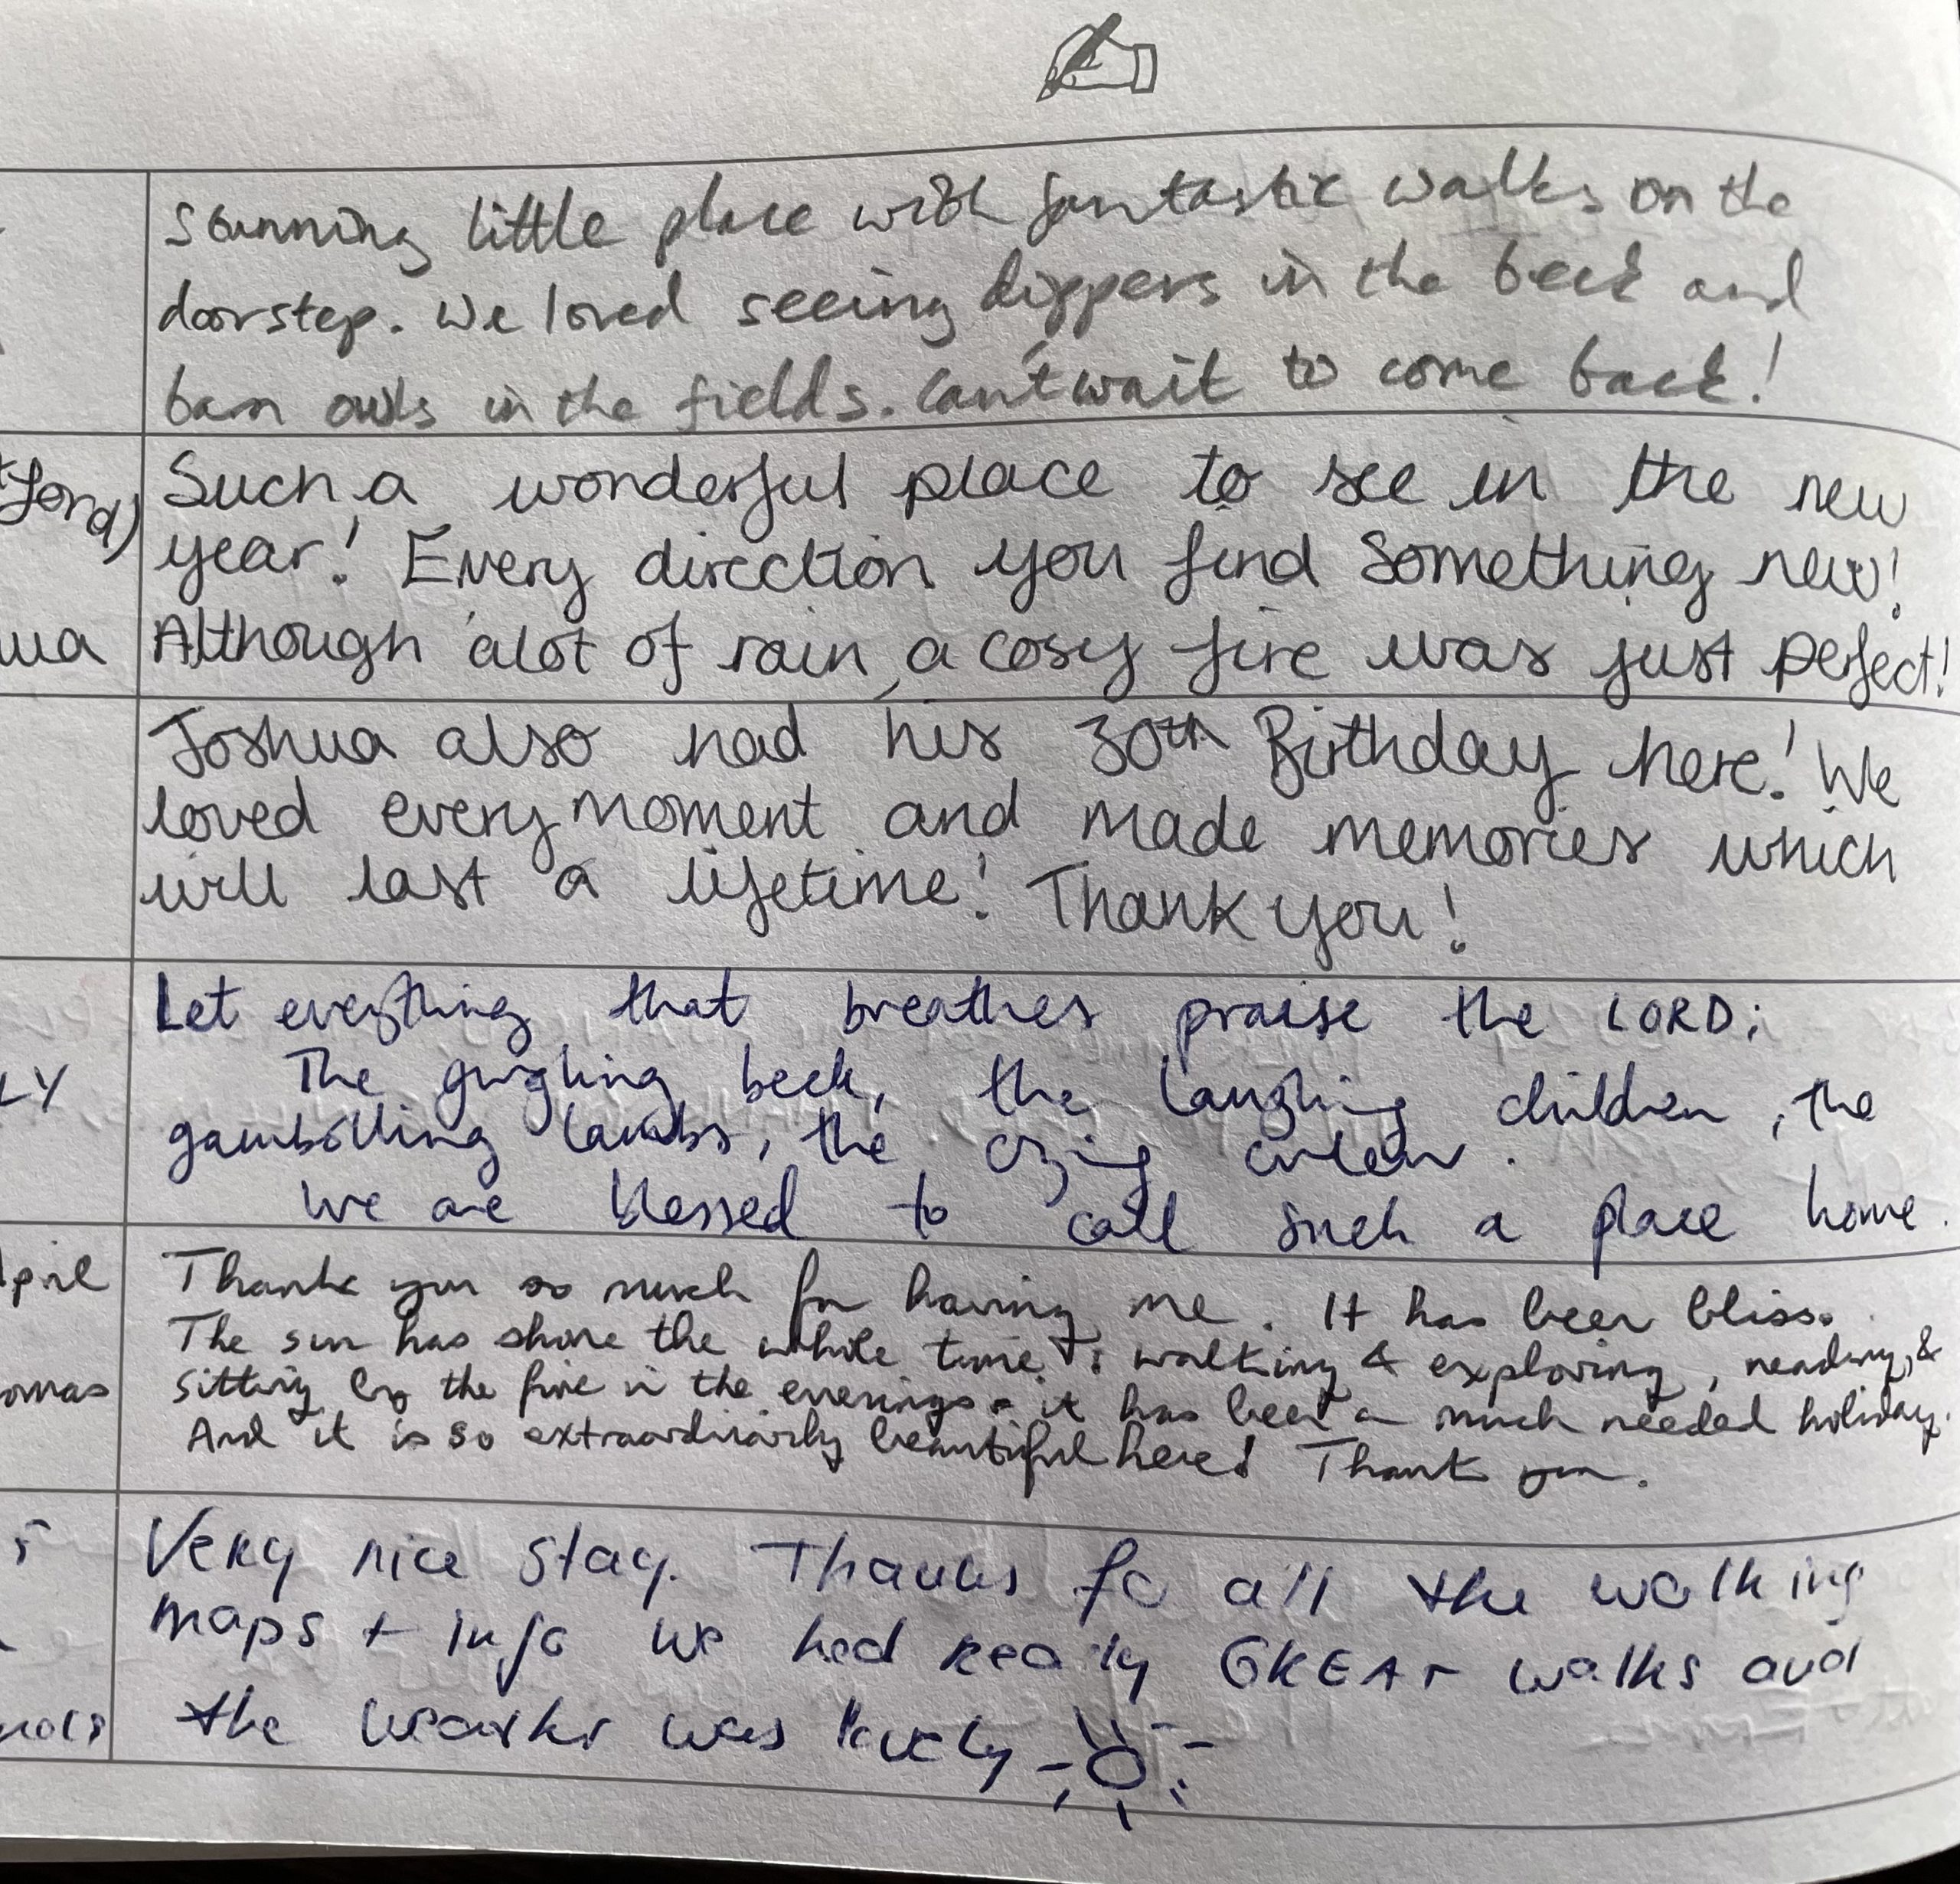 Stunning little place with fantastic walks on the
doorstep. We loved seeing dippers in the beck and
barn owls in the fields. Can't wait to come back!
Such a wonderful place to see in the new
year! Every direction you find something new!
ua Although alot of rain, a cosy fire was just perfect!
Joshua also had his 30th Birthday here! We
loved every moment and made memories which
will last a lifetime! Thank you!
Let everything that breathes praise the LORD;
LY The gurgling beck, the laughing children, the
gambolling lambs, the crying curlew.
We are blessed to call such a place home.
pril Thank you so much for having me. It has been bliss.
The sun has shone the whole time: walking & exploring, reading, &
omas sitting by the fire in the evenings - it has been a much needed holiday.
And it is so extraordinarily beautiful here! Thank you.
Very nice stay. Thanks fo all the walking
maps + info we had really GREAT walks and
the weather was lovely